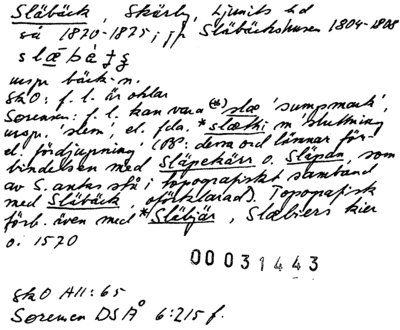 Släbäck, Skärby, Ljunits hd
så 1820-1825; jfr Släbäckshusen 1804-1808
slǽbàʈʒ
urspr bäck-n.
SkO: f. l. är oklar
Sorensen: f. l. kan vara (*) slæ 'sumpmark',
urspr. 'slem', el. fda. *slæthi m 'sluttning
el. fördjupning' (OBS: dessa ord lämnar för-
bindelsen med Släpekärr o. Släpan, som
av S. antas stå i topografiskt samband
med Släbäck, oförklarad). Topografisk
förb. även med *Släbjär, Slæbiers kier
o. 1570
00031443
SkO All: 65
Sorensen DSÅ 6:215 f.